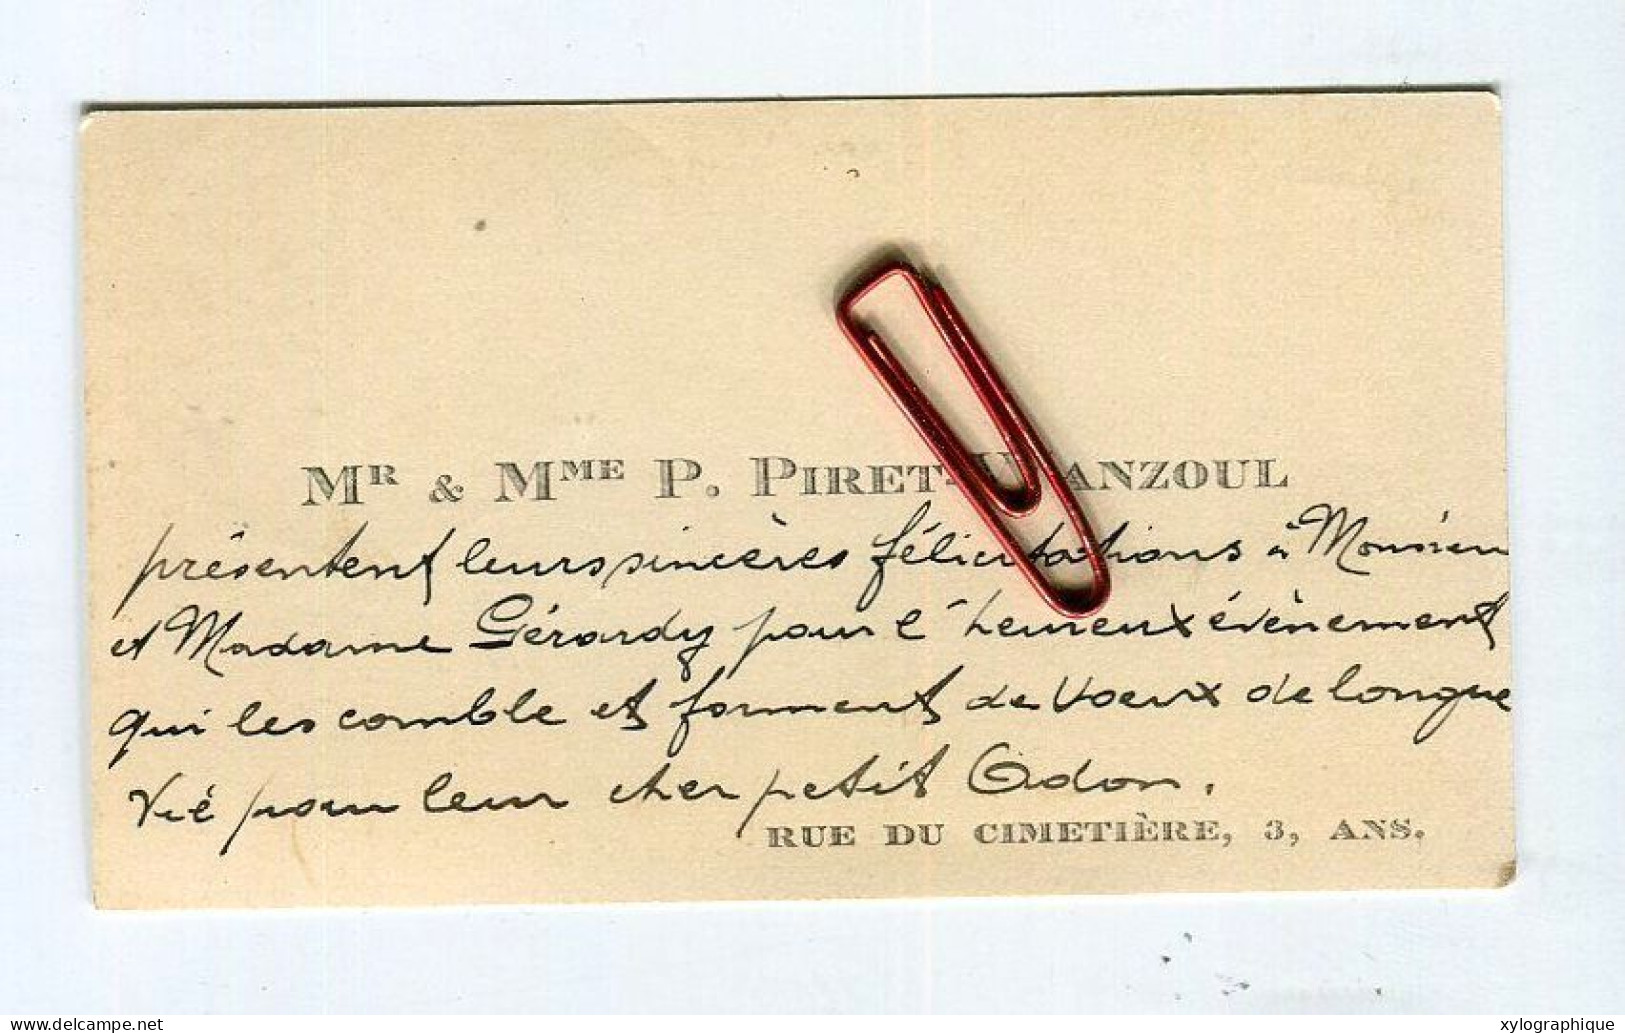 Mr & Mme P. Piret-
présentent leurs sincères félicitations à Monsieur
et Madame Gérardy pour l'heureux évènement
qui les comble et forment de voeux de longue
vie pour leur cher petit Odon.
RUE DU CIMETIÈRE, 3, ANS.
delcampe.net
xylographique